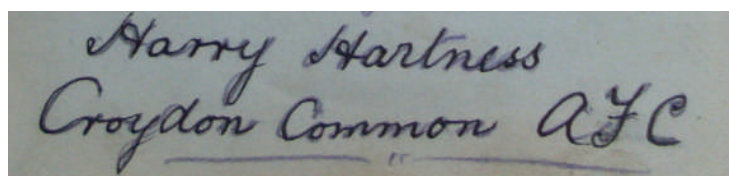 Harry Hartness
Croydon Common AFC